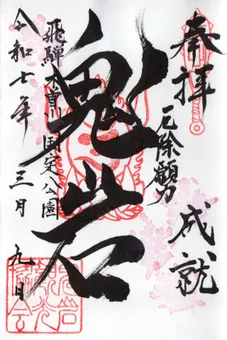 奉拝
厄除願
成就
鬼岩
飛騨木曽川国定公園
令和七年三月九日